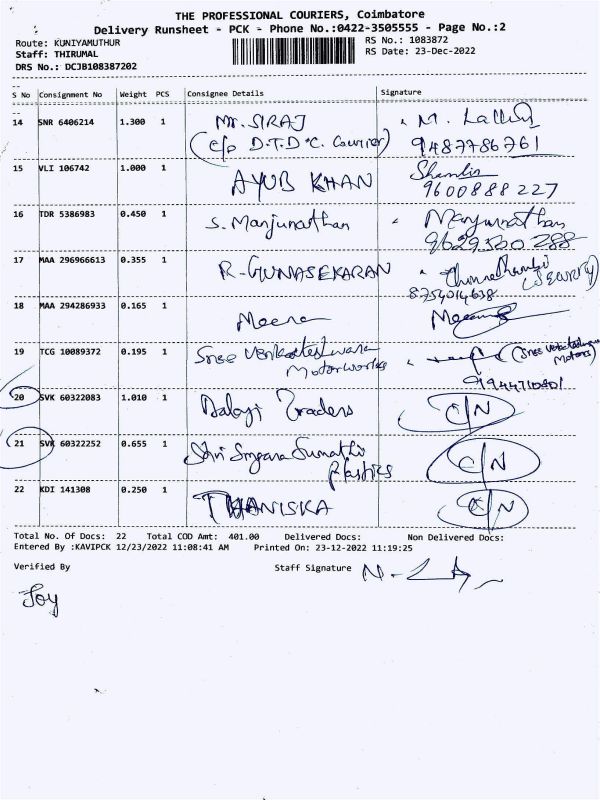 THE PROFESSIONAL COURIERS, Coimbatore
Delivery Runsheet - PCK - Phone No.:0422-3505555 - Page No.:2
Route: KUNIYAMUTHUR RS No.: 1083872
Staff: THIRUMAL RS Date: 23-Dec-2022
DRS No.: DCJB108387202
S No Consignment No Weight PCS Consignee Details Signature
14 SNR 6406214 1.300 1 Mr. SIRAJ
(C/o D.T.D.C. Courier) 9487786761
15 VLI 106742 1.000 1 AYUB KHAN
9600888227
16 TDR 5386983 0.450 1 S. Manjunathan Manjunathan
9629500288
17 MAA 296966613 0.355 1 R-GUNASEKARAN
8754014638
18 MAA 294286933 0.165 1 Meena Meena
19 TCG 10089372 0.195 1 Sree Venkateshwara
Motorworks
20 SVK 60322083 1.010 1 Balaji Traders C/N
21 SVK 60322252 0.655 1 Shri Sumathi C/N
Plastics
22 KDI 141308 0.250 1 THANISKA C/N
Total No. Of Docs: 22 Total COD Amt: 401.00 Delivered Docs: Non Delivered Docs:
Entered By :KAVIPCK 12/23/2022 11:08:41 AM Printed On: 23-12-2022 11:19:25
Verified By Staff Signature
Joy